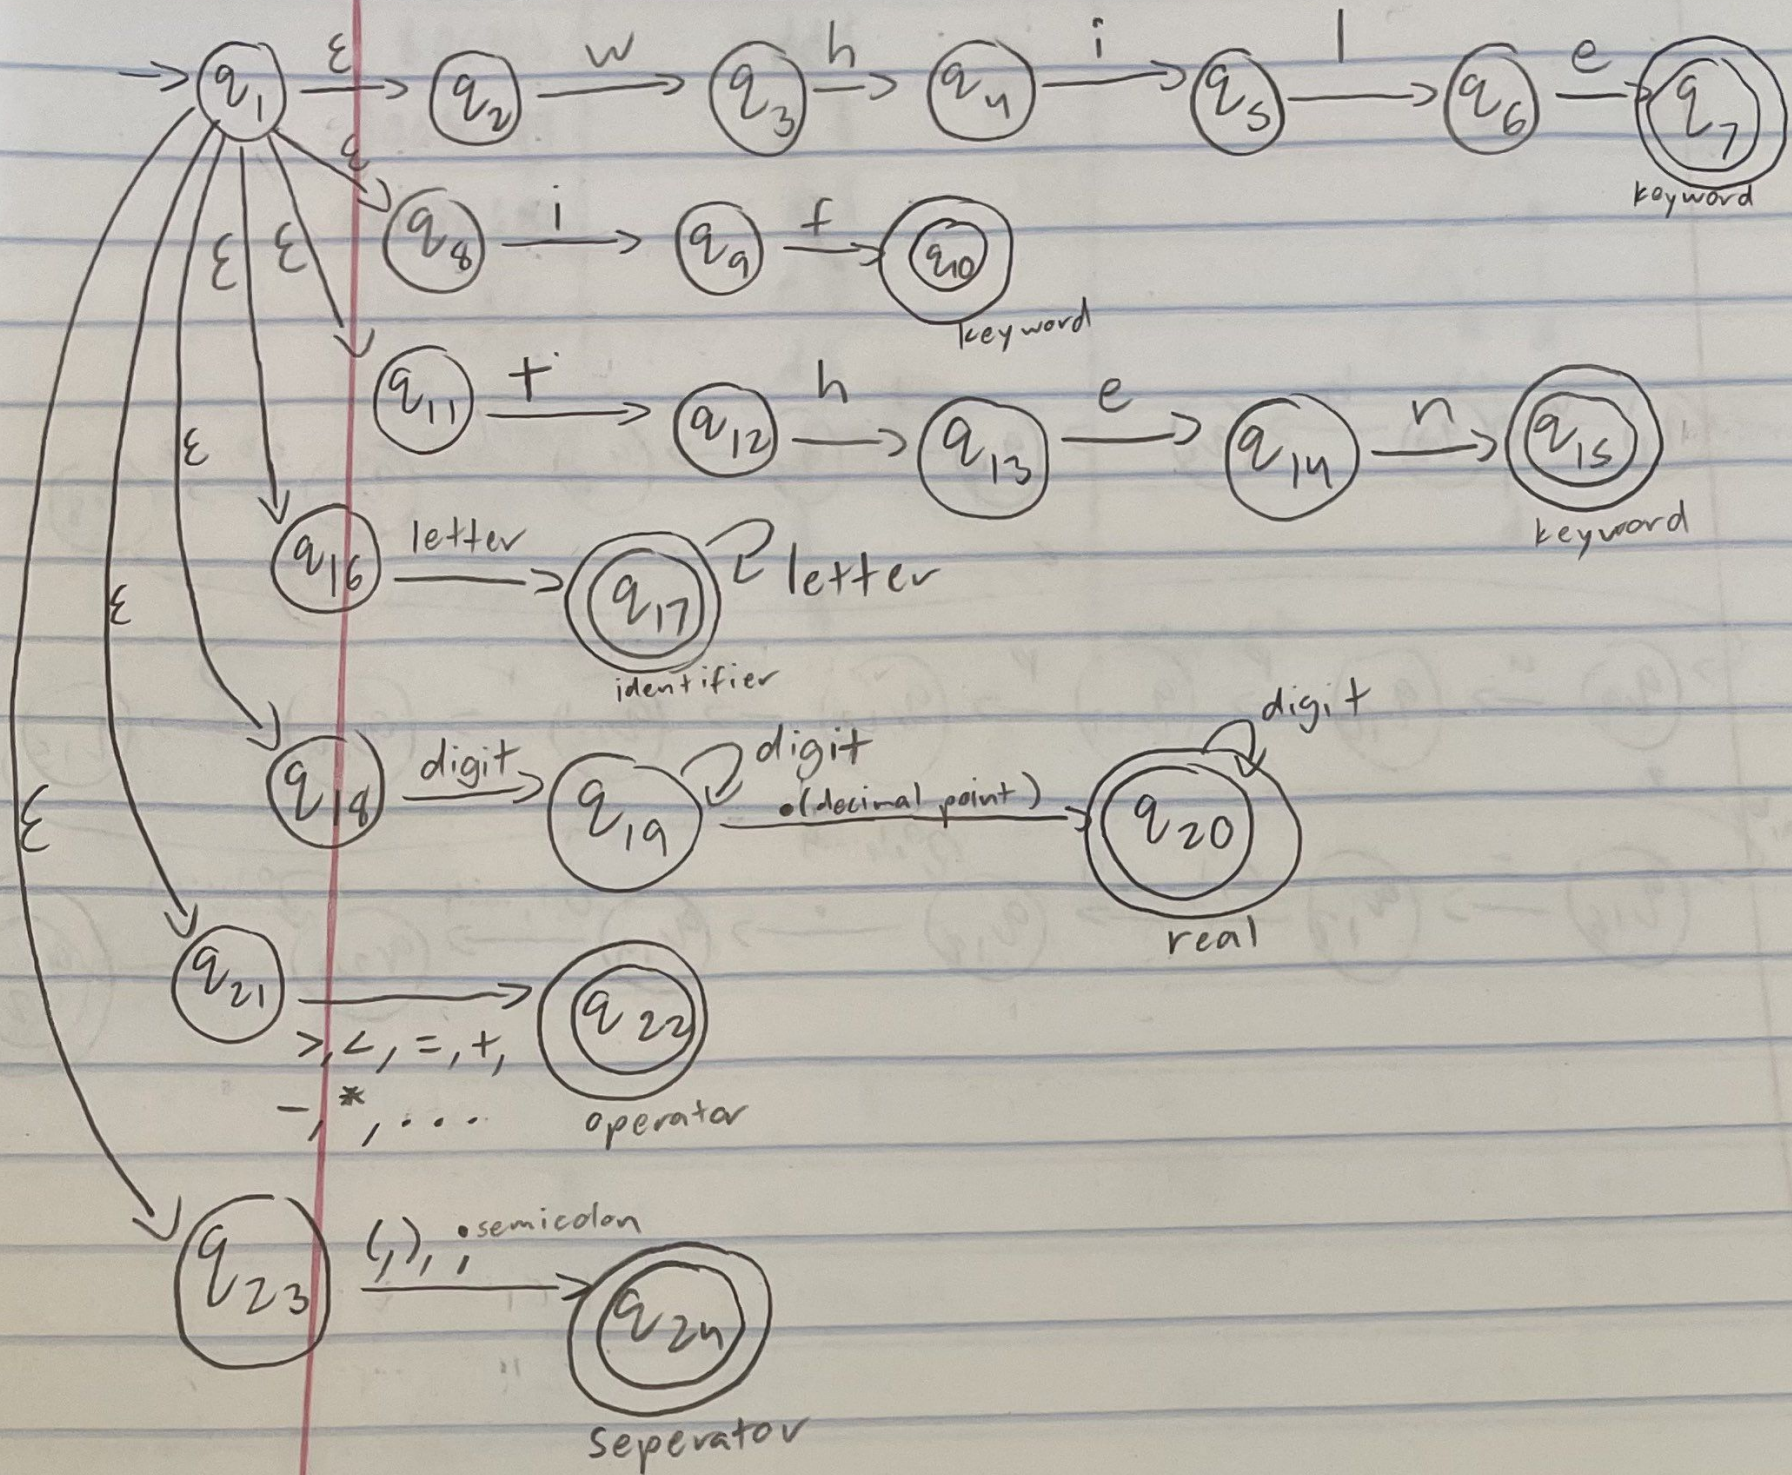 q1 ε q2 w q3 h q4 i q5 l q6 e q7
keyword
ε q8 i q9 f q10
keyword
ε q11 t q12 h q13 e q14 n q15
keyword
ε q16 letter q17 letter
identifier
ε q18 digit q19 digit .(decimal point) q20 digit
real
ε q21 >, <, =, +, q22
-, *, , ...
operator
ε q23 (,), ; semicolon q24
Seperator